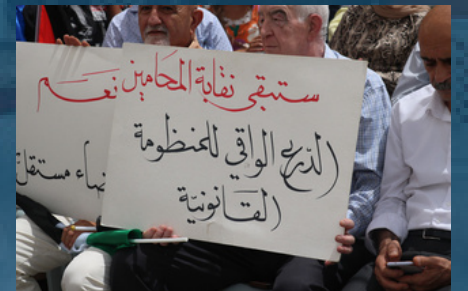 ستبقى نقابة المحامين
الدرع الواقي للمنظومة
القانونية
نعم
ضاء مستقل